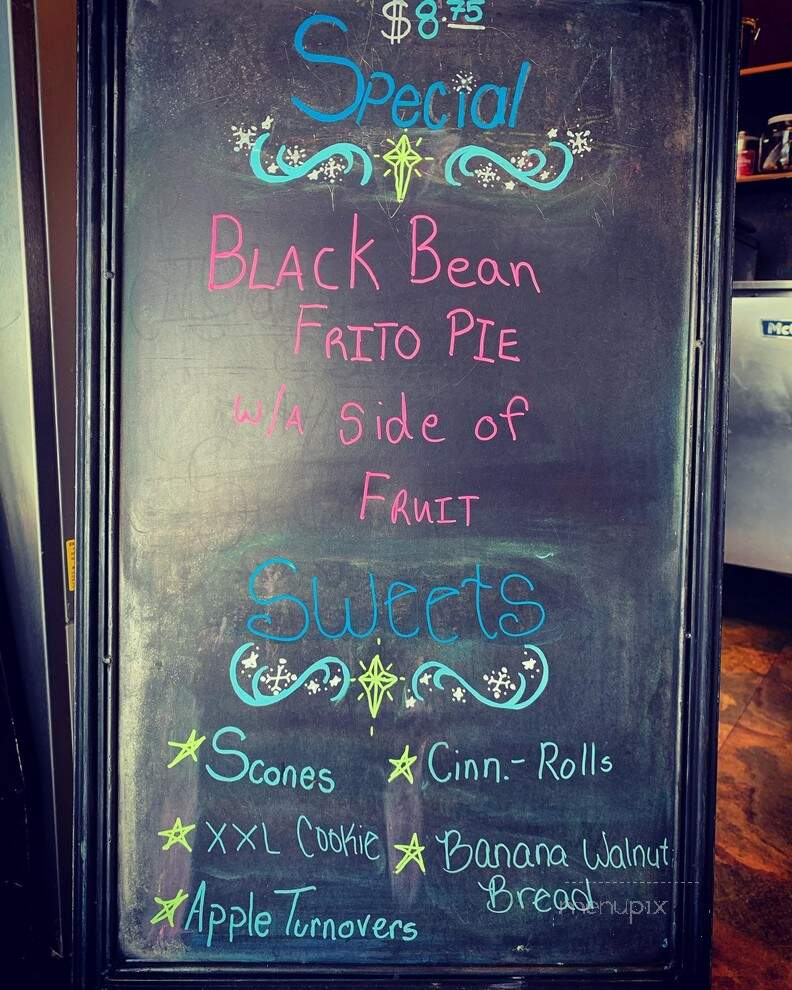 $8.75
Special
Black Bean
Frito Pie
w/a Side of
Fruit
Sweets
Scones
Cinn.-Rolls
XXL Cookie
Banana Walnut
Bread
Apple Turnovers
menupix